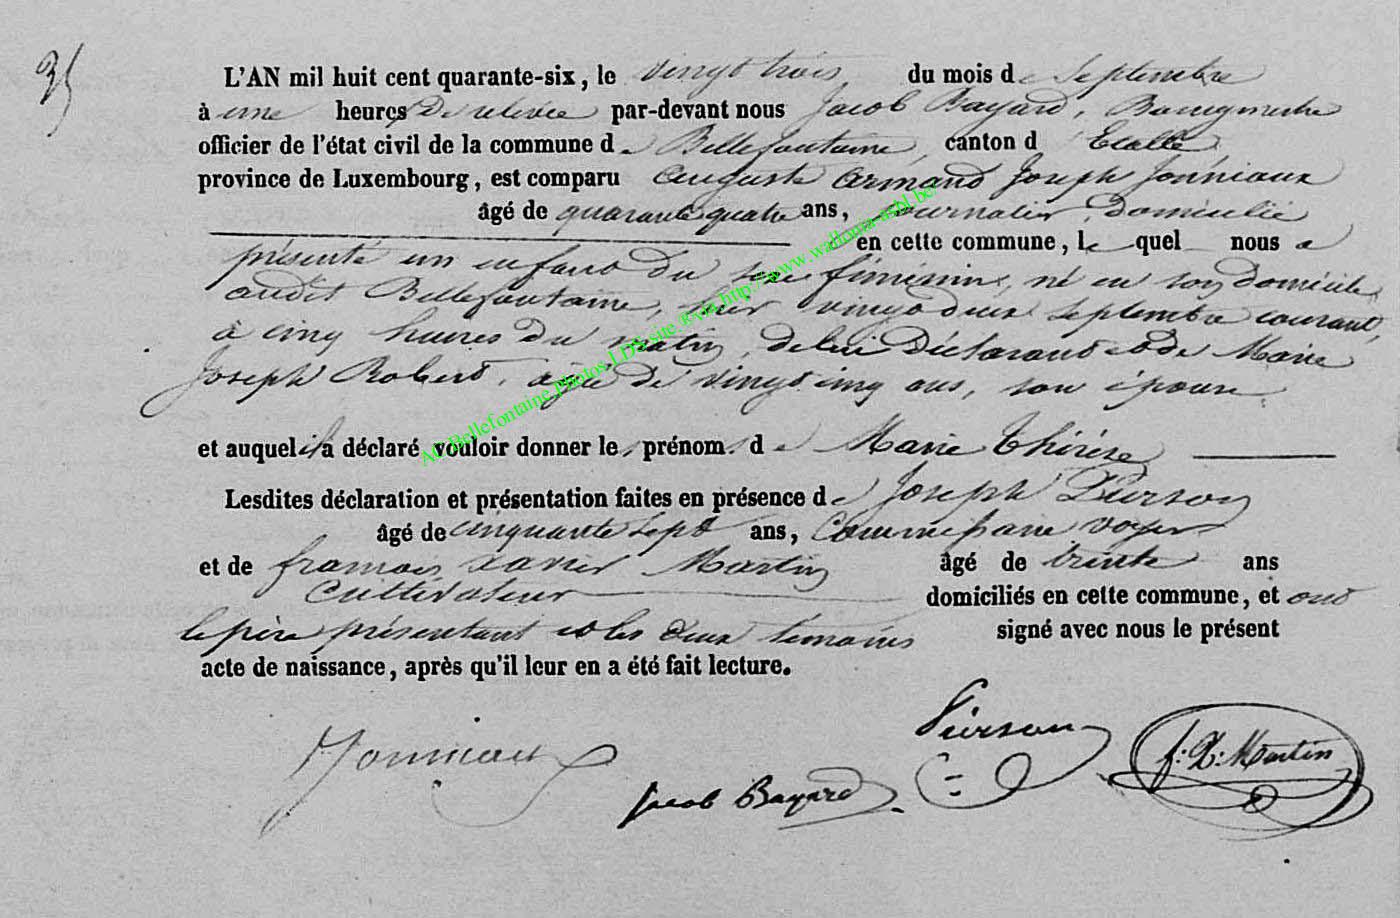 35
L'AN mil huit cent quarante-six, le vingt trois du mois de Septembre
à une heures de relevée par-devant nous Jacob Bayard, Bourgmestre
officier de l'état civil de la commune de Bellefontaine, canton d Etalle
province de Luxembourg, est comparu Auguste Armand Joseph Jonniaux
âgé de quarante quatre ans, journalier, domicilié
en cette commune, le quel nous a
présenté un enfant du sexe féminin, né en son domicile
audit Bellefontaine, hier vingt deux Septembre courant,
à cinq heures du matin, de lui déclarant et de Marie
Joseph Robert, agée de vingt cinq ans, son épouse
et auquel il a déclaré vouloir donner les prénoms de Marie Thérèse
Lesdites déclaration et présentation faites en présence de Joseph Pierson
âgé de cinquante sept ans, Commissaire voyer
et de françois Xavier Martin âgé de trente ans
Cultivateur domiciliés en cette commune, et ont
le père présentant et les deux témoins signé avec nous le présent
acte de naissance, après qu'il leur en a été fait lecture.
Jonniaux
Jacob Bayard
Pierson
f: X: Martin
AC Bellefontaine Photos LDS site ®via http://www.wallonia-asbl.be/